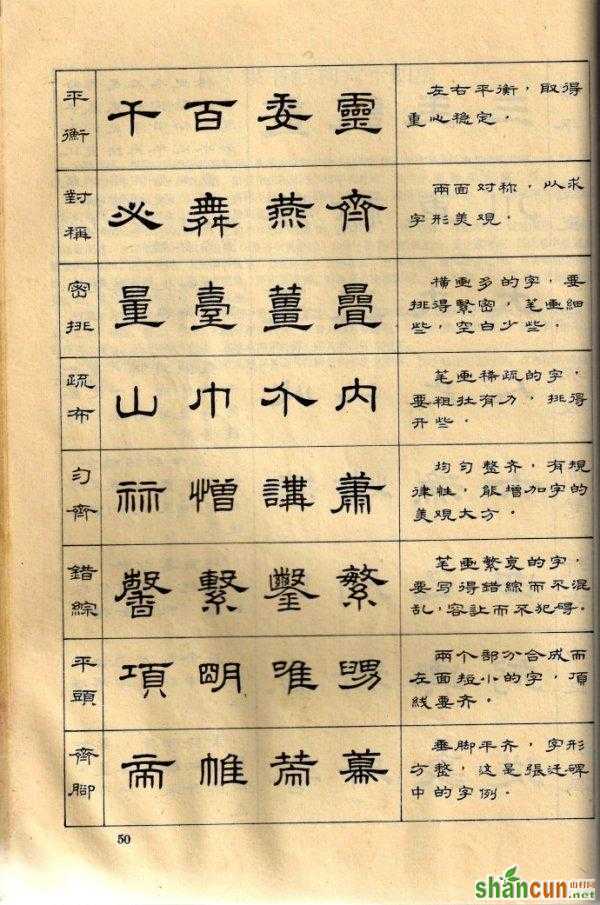 平衡
千百委靈
左右平衡，取得
重心稳定。
對稱
必舞燕齊
兩面对称，以求
字形美观。
密排
量臺薑疊
横画多的字，要
排得緊密，笔画細
些，空白少些。
疏布
山巾介内
笔画稀疏的字，
要粗壮有力，排得
开些。
匀齊
憎講蕭
均匀整齐，有規
律性，能增加字的
美观大方。
錯綜
馨繫鑿繁
笔画繁衷的字，
要写得錯綜而不混
乱，容让而不犯碍。
平頭
項明唯
兩个部分合成而
左面短小的字，頂
线要齐。
齊腳
帝帷幕
垂脚平齐，字形
方整，这是張迁碑
中的字例。
50
shancun
山村网
.net